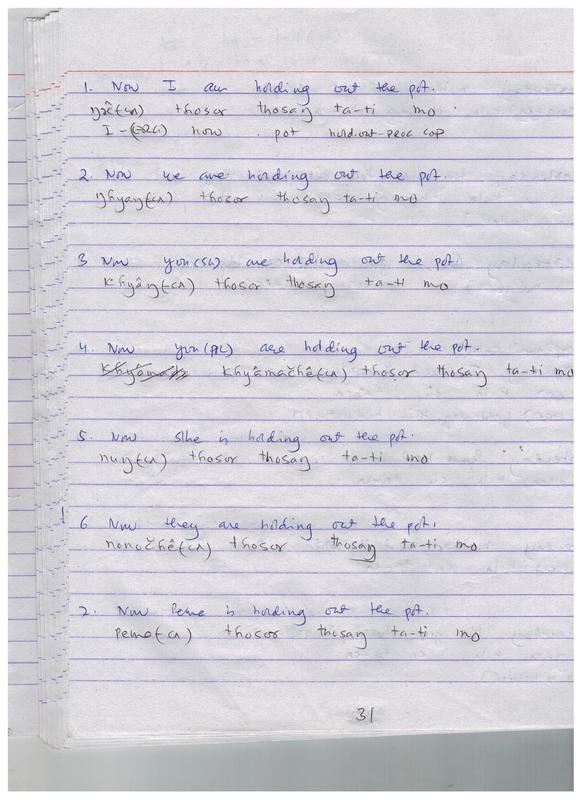 1. Now I am holding out the pot.
ŋæ̂(ʌ) thosor thosaŋ ta-ti mo
I-(ERG) now pot hold.out-PROG COP
2. Now we are holding out the pot.
ŋhyaŋ(ʌ) thosor thosaŋ ta-ti mo
3 Now you(SG) are holding out the pot
Khyâŋ(ʌ) thosor thosaŋ ta-ti mo
4. Now you(PL) are holding out the pot.
khyâmačhê(ʌ) thosor thosaŋ ta-ti mo
5. Now s/he is holding out the pot.
nuŋ(ʌ) thosor thosaŋ ta-ti mo
6 Now they are holding out the pot.
nonočhê(ʌ) thosor thosaŋ ta-ti mo
7. Now Peme is holding out the pot.
peme(ʌ) thosor thosaŋ ta-ti mo
31